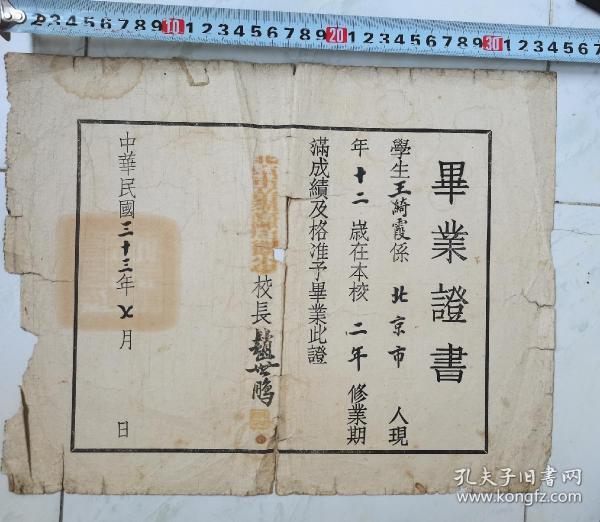 畢業證書
學生王綺霞係 北京市 人現
年十二歲在本校 二年 修業期
滿成績及格准予畢業此證
校長趙世鵬
中華民國三十三年七月 日
23456789 10 123456789 20 123456789 30 1234567
孔夫子旧书网
www.kongfz.com